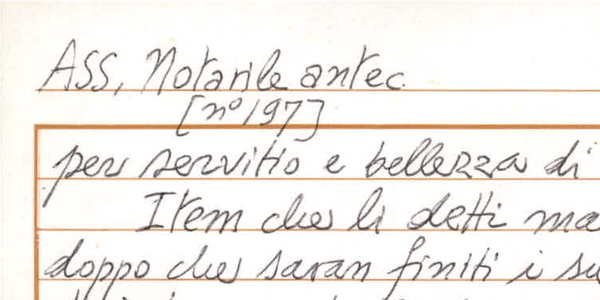 ASS, Notarile antec.
[n° 197]
per servitio e bellezza di
Item che li detti ma
doppo che saran finiti i su